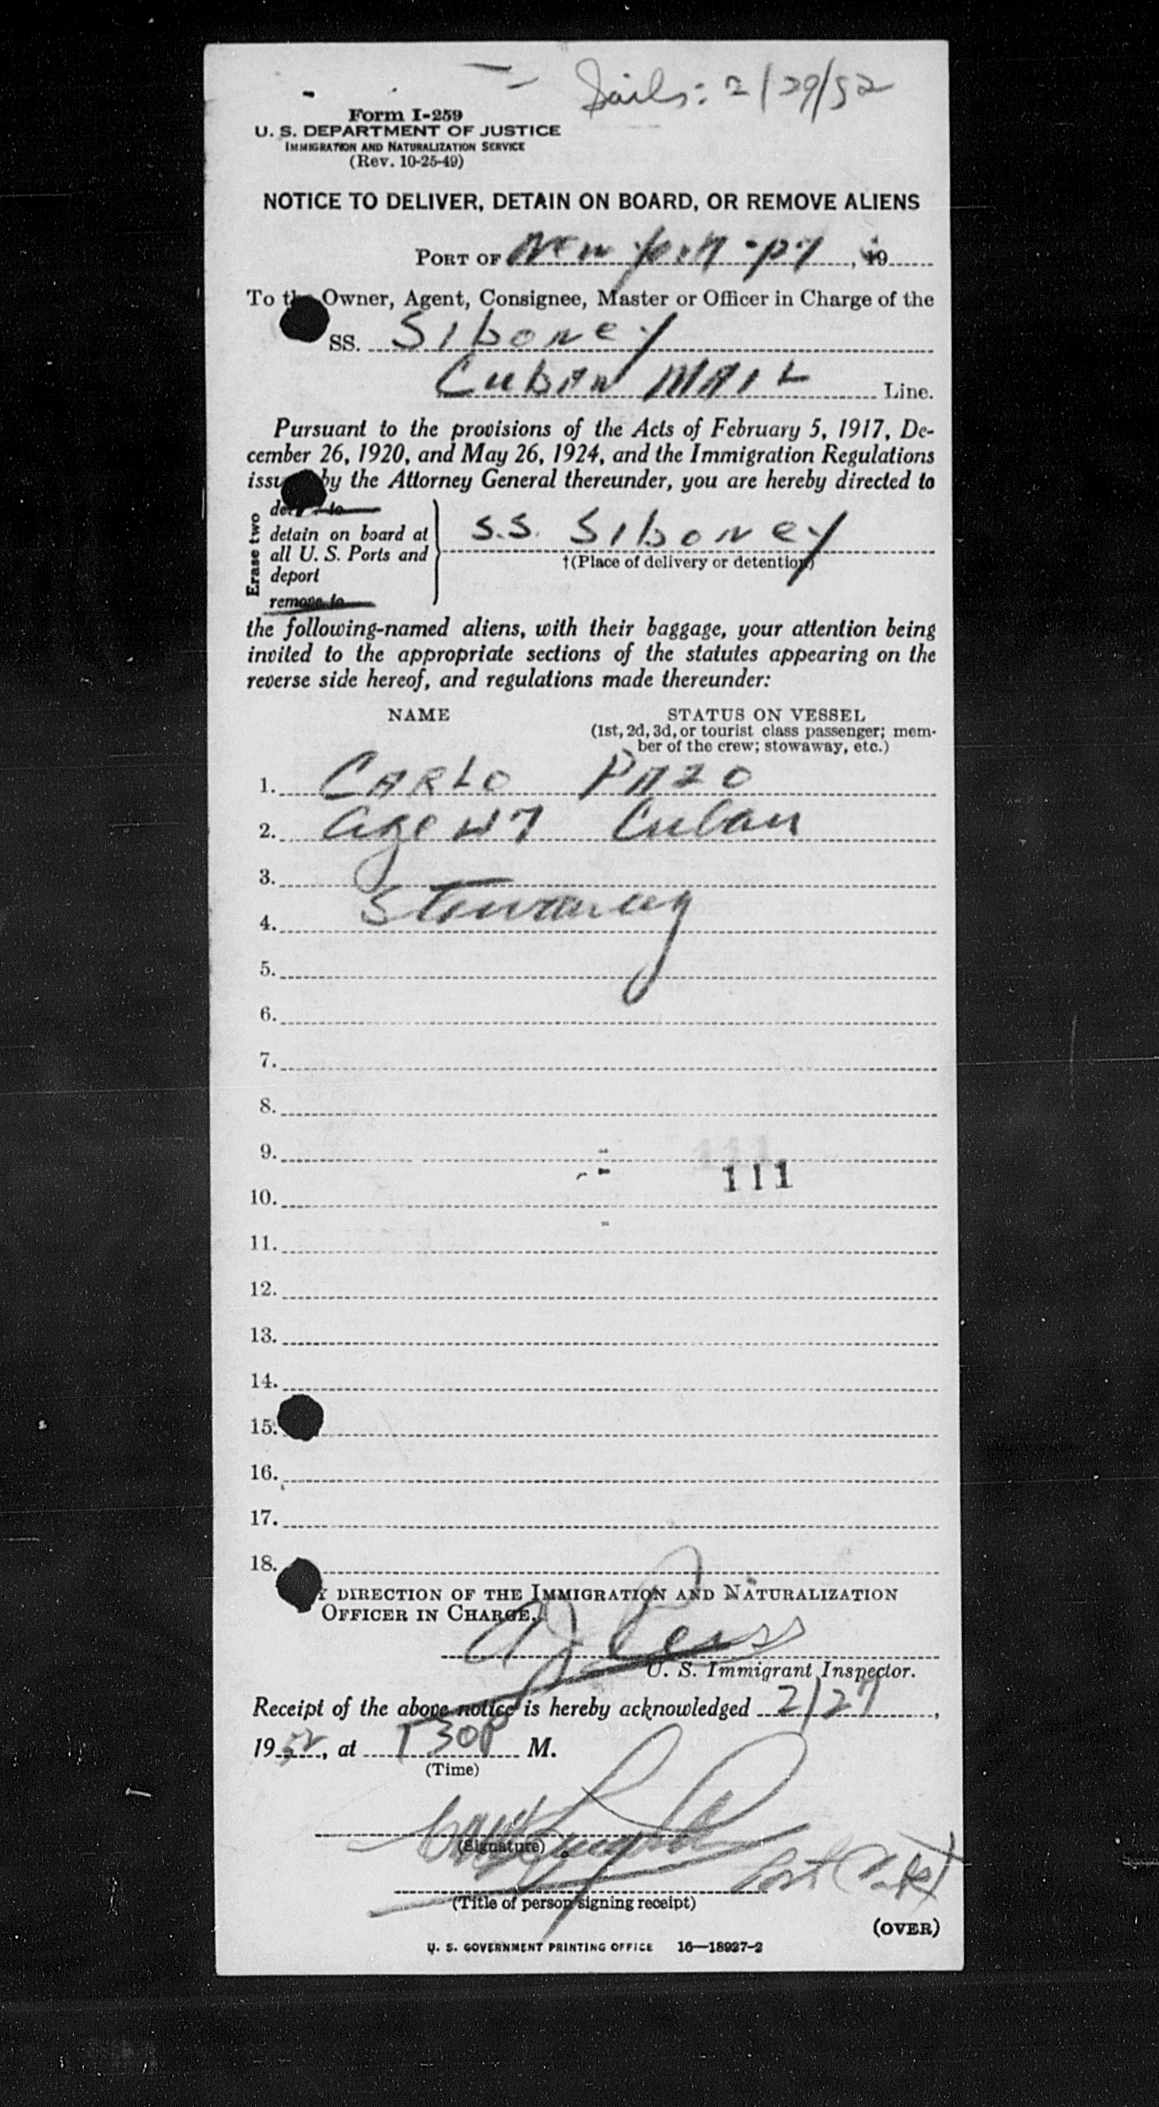 Sails: 2/29/52
Form I-259
U. S. DEPARTMENT OF JUSTICE
IMMIGRATION AND NATURALIZATION SERVICE
(Rev. 10-25-49)
NOTICE TO DELIVER, DETAIN ON BOARD, OR REMOVE ALIENS
PORT OF New York , 19
To the Owner, Agent, Consignee, Master or Officer in Charge of the
SS. Siboney
Cuban MAIL Line.
Pursuant to the provisions of the Acts of February 5, 1917, De-
cember 26, 1920, and May 26, 1924, and the Immigration Regulations
issued by the Attorney General thereunder, you are hereby directed to
Erase two
detain on board at
all U. S. Ports and
deport
remove to
S.S. Siboney
†(Place of delivery or detention)
the following-named aliens, with their baggage, your attention being
invited to the appropriate sections of the statutes appearing on the
reverse side hereof, and regulations made thereunder:
NAME STATUS ON VESSEL
(1st, 2d, 3d, or tourist class passenger; mem-
ber of the crew; stowaway, etc.)
1. CARLO PAZO
2. Age 47 Cuban
3.
4. Stowaway
5.
6.
7.
8.
9.
111
10.
11.
12.
13.
14.
15.
16.
17.
18.
BY DIRECTION OF THE IMMIGRATION AND NATURALIZATION
OFFICER IN CHARGE.
U. S. Immigrant Inspector.
Receipt of the above notice is hereby acknowledged 2/27,
1952, at 130P M.
(Time)
(Signature)
(Title of person signing receipt)
(OVER)
U. S. GOVERNMENT PRINTING OFFICE 16—18927-2